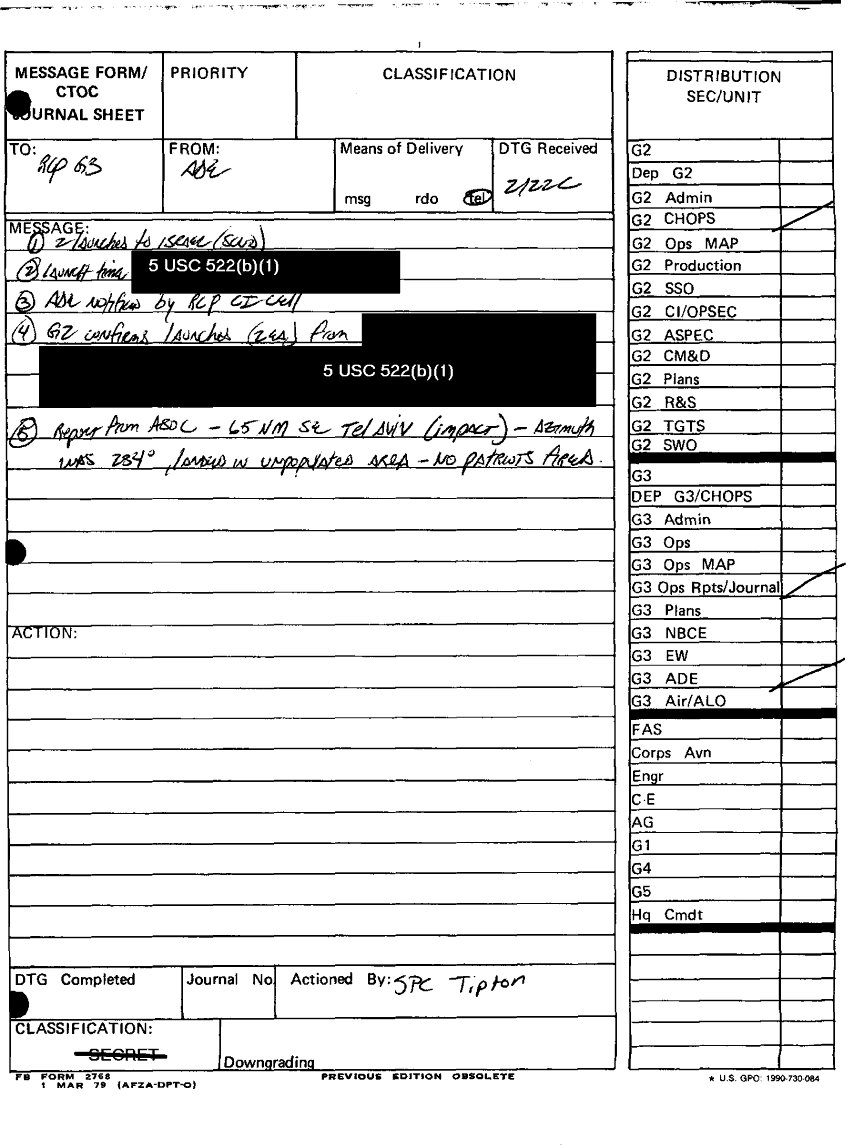 MESSAGE FORM/
CTOC
JOURNAL SHEET
PRIORITY
CLASSIFICATION
TO:
RCP G3
FROM:
ADE
Means of Delivery
msg rdo tel
DTG Received
2122C
MESSAGE:
① 2 launches to ISRAEL (SCUD)
② Launch time 5 USC 522(b)(1)
③ ADE notified by RCP CI CELL
④ G2 confirms launches (2EA) from
5 USC 522(b)(1)
⑤ Report from ASOC - 65 NM SE Tel AVIV (impact) - AZIMUTH
WAS 284°, landed in unpopulated AREA - NO PATRIOTS FIRED.
ACTION:
DTG Completed
Journal No.
Actioned By: SPC Tipton
CLASSIFICATION:
SECRET
Downgrading
FB FORM 2768
1 MAR 79 (AFZA-DPT-O)
PREVIOUS EDITION OBSOLETE
DISTRIBUTION
SEC/UNIT
G2
Dep G2
G2 Admin
G2 CHOPS
G2 Ops MAP
G2 Production
G2 SSO
G2 CI/OPSEC
G2 ASPEC
G2 CM&D
G2 Plans
G2 R&S
G2 TGTS
G2 SWO
G3
DEP G3/CHOPS
G3 Admin
G3 Ops
G3 Ops MAP
G3 Ops Rpts/Journal
G3 Plans
G3 NBCE
G3 EW
G3 ADE
G3 Air/ALO
FAS
Corps Avn
Engr
C-E
AG
G1
G4
G5
Hq Cmdt
* U.S. GPO: 1990-730-084